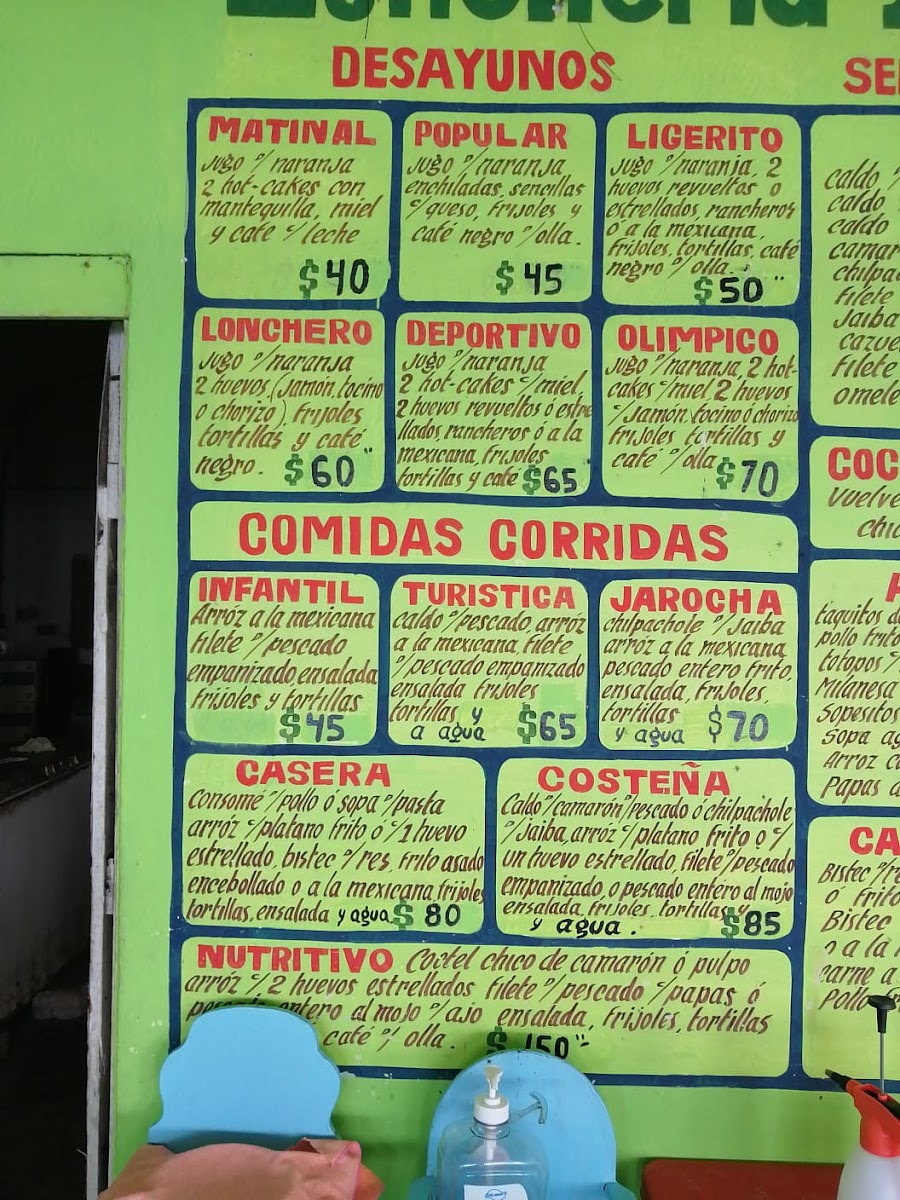 DESAYUNOS
MATINAL
Jugo º/naranja
2 hot-cakes con
mantequilla, miel
y café c/leche
$40
POPULAR
Jugo º/naranja
enchiladas, sencillas
c/queso, frijoles y
café negro º/olla.
$45
LIGERITO
Jugo º/naranja, 2
huevos revueltos o
estrellados, rancheros
o a la mexicana,
frijoles, tortillas, café
negro º/olla.
$50
LONCHERO
Jugo º/naranja
2 huevos, (Jamón, tocino
o chorizo), frijoles
tortillas y café
negro. $60
DEPORTIVO
Jugo º/naranja
2 hot-cakes c/miel
2 huevos revueltos ó estre
llados, rancheros ó a la
mexicana, frijoles
tortillas y café $65
OLIMPICO
Jugo º/naranja, 2 hot-
cakes c/miel, 2 huevos
c/Jamón, tocino ó chorizo
frijoles, tortillas y
café º/olla $70
COMIDAS CORRIDAS
INFANTIL
Arróz a la mexicana
filete º/pescado
empanizado, ensalada
frijoles y tortillas
$45
TURISTICA
caldo º/pescado, arróz
a la mexicana, filete
º/pescado empanizado
ensalada frijoles
tortillas y
a agua $65
JAROCHA
chilpachole º/Jaiba
arróz a la mexicana
pescado entero frito,
ensalada, frijoles,
tortillas
y agua $70
CASERA
Consomé º/pollo ó sopa º/pasta
arróz c/platano frito ó c/1 huevo
estrellado, bistec º/res, frito asado
encebollado o a la mexicana, frijoles
tortillas, ensalada y agua $80
COSTEÑA
Caldo º/camarón º/pescado ó chilpachole
º/Jaiba, arróz c/platano frito o c/
un huevo estrellado, filete º/pescado
empanizado, o pescado entero al mojo
ensalada, frijoles, tortillas y
y agua. $85
NUTRITIVO Coctel chico de camarón ó pulpo
arróz c/2 huevos estrellados filete º/pescado c/papas ó
entero al mojo º/ajo ensalada, frijoles, tortillas
café º/olla. $150
caldo
caldo
caldo
filete
Jaiba
filete
COC
Vuelve
taquitos
pollo frito
totopos
Milanesa
Sopesitos
Sopa
Arroz
Papas
CA
Bistec º/re
ó frito
Bistec
o a la
carne a
Pollo